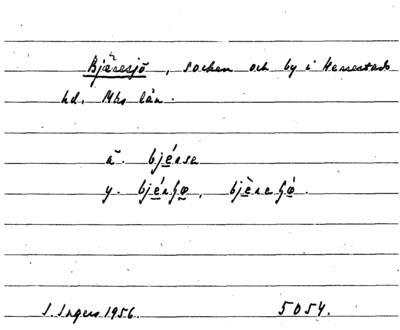 Bjäresjö, socken och by i Herrestads
hd. Mhs län.
ä. bjérse
y. bjérʃø, bjèreʃǿ.
I. Ingers 1956. 5054.